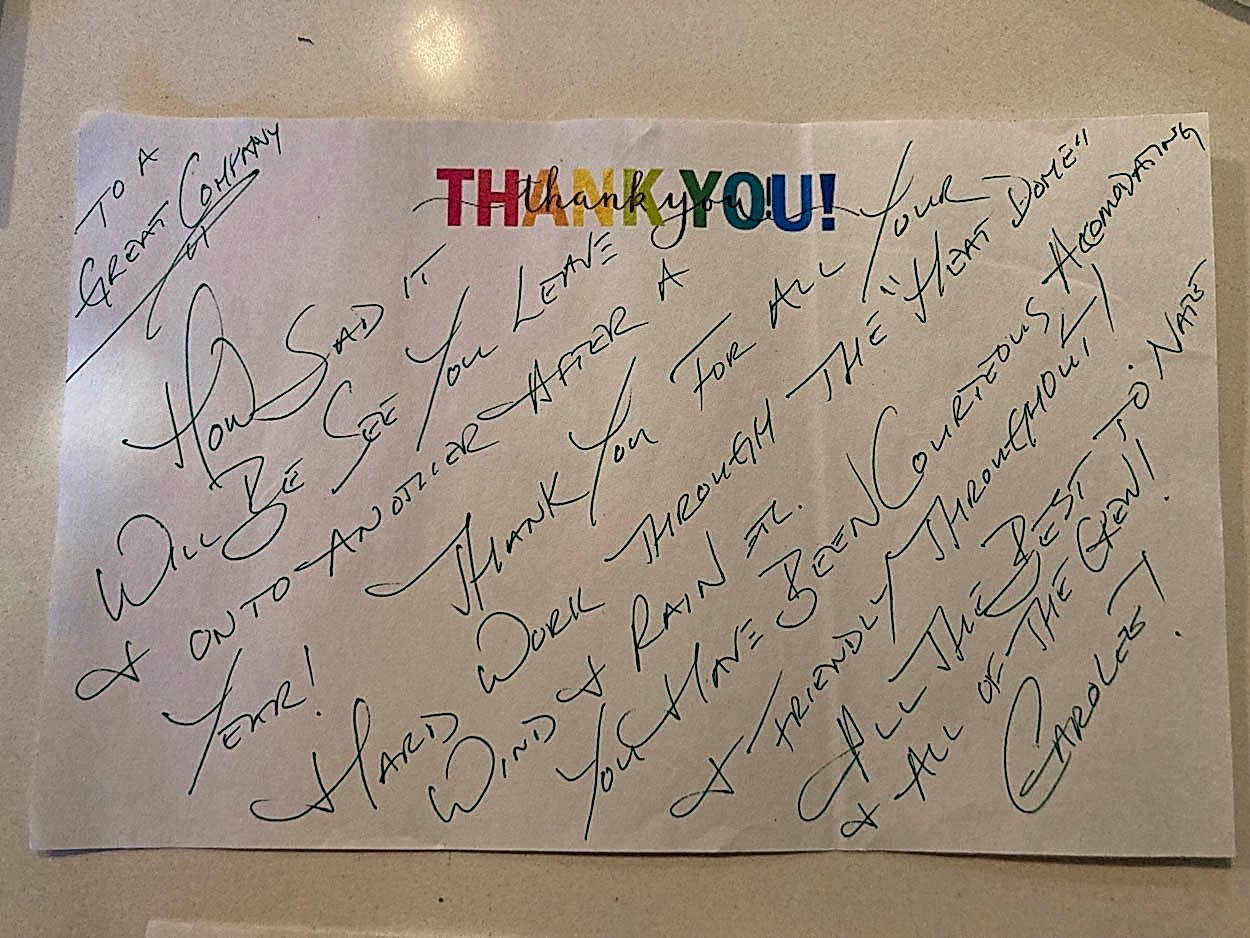 THANK YOU!
thank you!
TO A
GREAT COMPANY
How SAD IT
WILL BE SEE YOU LEAVE
& ONTO ANOTHER AFTER A
YEAR!
THANK YOU FOR ALL YOUR
HARD WORK THROUGH THE "HEAT DOME"
WIND & RAIN ETC.
YOU HAVE BEEN COURTEOUS ACCOMODATING
& FRIENDLY THROUGHOUT!
ALL THE BEST TO NATE
& ALL OF THE CREW!